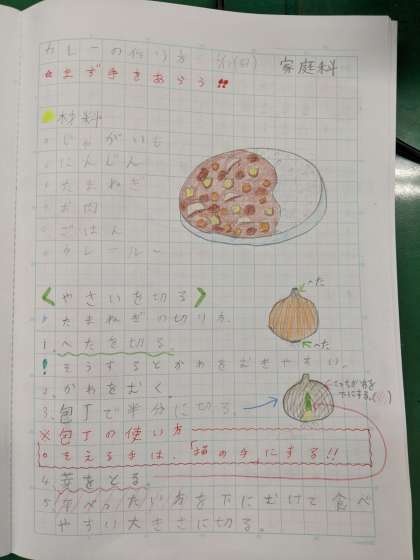 カレーの作り方 家庭科
☆まず手をあらう!!
材料
○じゃがいも
○にんじん
○たまねぎ
○お肉
○ごはん
○カレールー
<やさいを切る>
○たまねぎの切り方.
へた
1.へたを切る。
へた
!そうするとかわをむきやすい。
2.かわをむく。
3.包丁で半分に切る。
※包丁の使い方
○そえる手は、「猫の手にする!!
4.芽をとる。
5.平べったい方を下にむけて食べ
やすい大きさに切る。